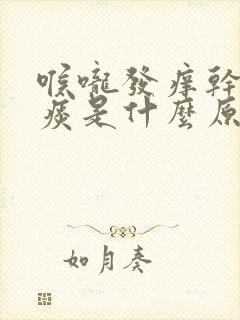 喉嚨發痒幹
痰是什麼原
如月奏